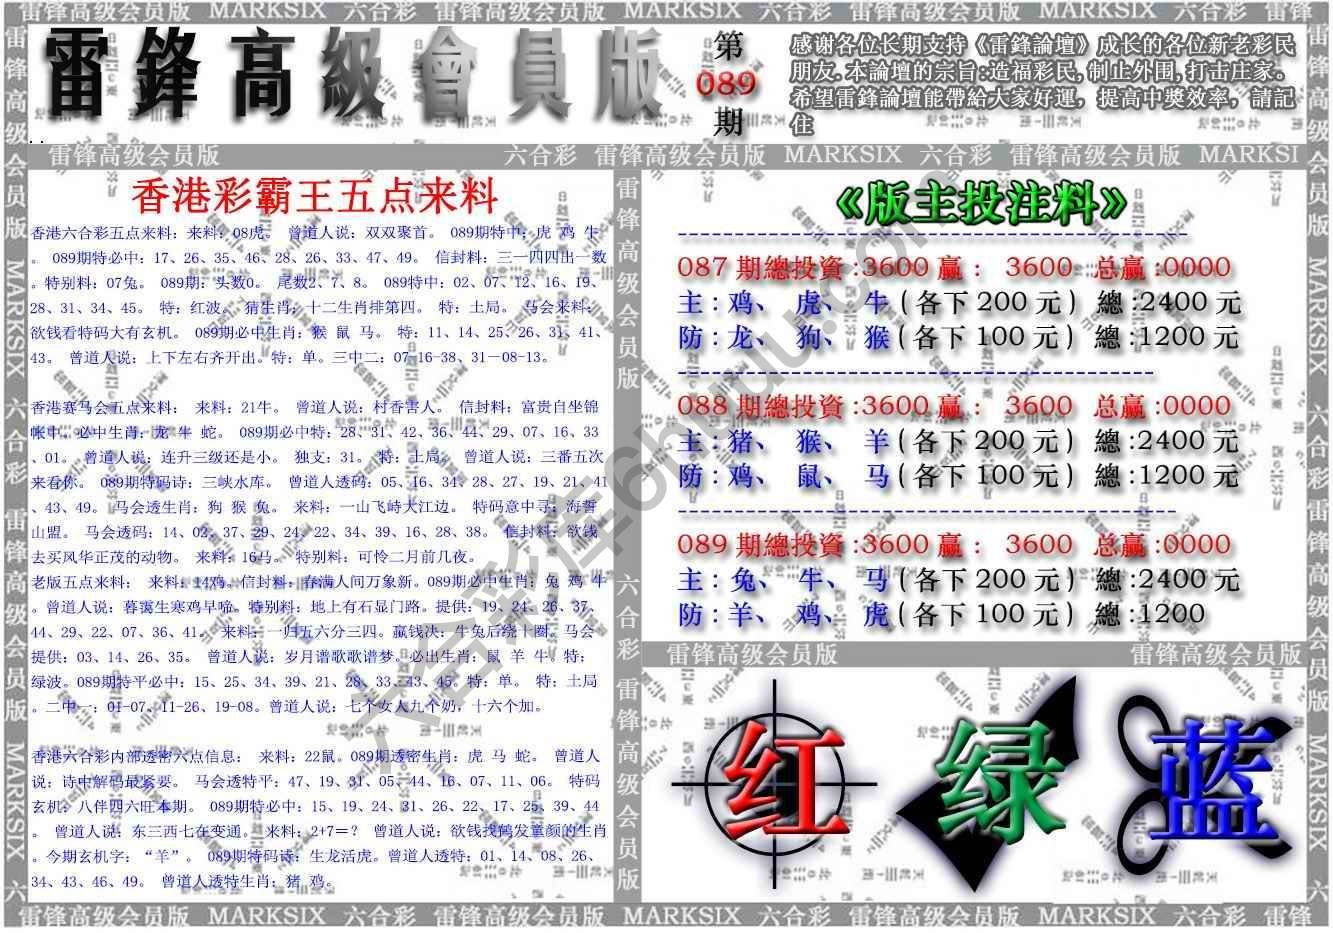 雷锋高级会员版 MARKSIX 六合彩 雷锋高级会员版 MARKSIX 六合彩 雷锋高级会员版 MARKSIX 六合彩 雷锋
雷鋒高級會員版
第
089
期
感谢各位长期支持《雷鋒論壇》成长的各位新老彩民
朋友.本論壇的宗旨:造福彩民,制止外围,打击庄家。
希望雷鋒論壇能帶給大家好運，提高中獎效率，請記
住
雷锋高级会员版
六合彩 雷锋高级会员版 MARKSIX 六合彩 雷锋高级会员版 MARKSI
香港彩霸王五点来料
香港六合彩五点来料：来料：08虎。 曾道人说：双双聚首。 089期特中：虎 鸡 牛
。 089期特必中：17、26、35、46、28、26、33、47、49。 信封料：三一四四出一数
。特别料：07兔。 089期：头数0。 尾数2、7、8。 089特中：02、07、12、16、19、
28、31、34、45。 特：红波。 猜生肖：十二生肖排第四。 特：土局。 马会来料：
欲钱看特码大有玄机。 089期必中生肖：猴 鼠 马。 特：11、14、25、26、31、41、
43。 曾道人说：上下左右齐开出。特：单。三中二：07-16-38、31－08-13。
香港赛马会五点来料： 来料：21牛。 曾道人说：村香害人。 信封料：富贵自坐锦
帐中。必中生肖：龙 牛 蛇。 089期必中特：28、31、42、36、44、29、07、16、33
、01。 曾道人说：连升三级还是小。 独支：31。 特：土局。 曾道人说：三番五次
来看你。 089期特码诗：三峡水库。 曾道人透码：05、16、34、28、27、19、21、41
、43、49。 马会透生肖：狗 猴 兔。 来料：一山飞峙大江边。 特码意中寻：海誓
山盟。 马会透码：14、02、37、29、24、22、34、39、16、28、38。 信封料：欲钱
去买风华正茂的动物。 来料：16马。 特别料：可怜二月前几夜。
老版五点来料： 来料：14鸡。信封料：春满人间万象新。089期必中生肖：兔 鸡 牛
。曾道人说：暮霭生寒鸡早啼。特别料：地上有石显门路。提供：19、24、26、37、
44、29、22、07、36、41。 来料：一归五六分三四。赢钱决：牛兔后绕十圈。马会
提供：03、14、26、35。 曾道人说：岁月谱歌歌谱梦。必出生肖：鼠 羊 牛。特：
绿波。089期特平必中：15、25、34、39、21、28、33、43、45。特：单。 特：土局
。二中一：01-07、11-26、19-08。曾道人说：七个女人九个奶，十六个加。
香港六合彩内部透密六点信息： 来料：22鼠。089期透密生肖：虎 马 蛇。 曾道人
说：诗中解码最紧要。 马会透特平：47、19、31、05、44、16、07、11、06。 特码
玄机：八伴四六旺本期。 089期特必中：15、19、24、31、26、22、17、25、39、44
。 曾道人说：东三西七在变通。 来料：2+7＝？ 曾道人说：欲钱找鹤发童颜的生肖
。今期玄机字：“羊”。 089期特码诗：生龙活虎。曾道人透特：01、14、08、26、
34、43、46、49。 曾道人透特生肖：猪 鸡。
《版主投注料》
087期總投資:3600 赢： 3600 总赢:0000
主:鸡、 虎、 牛(各下200元) 總:2400元
防:龙、 狗、 猴(各下100元) 總:1200元
088期總投資:3600 赢： 3600 总赢:0000
主:猪、 猴、 羊(各下200元) 總:2400元
防:鸡、 鼠、 马(各下100元) 總:1200元
089期總投資:3600 赢： 3600 总赢:0000
主:兔、 牛、 马(各下200元) 總:2400元
防:羊、 鸡、 虎(各下100元) 總:1200
雷锋高级会员版
雷锋高级会员版
红 绿 蓝
雷锋高级会员版 MARKSIX 六合彩 雷锋高级会员版 MARKSIX 六合彩 雷锋高级会员版 MARKSIX 六合彩 雷锋
雷锋高级会员版 MARKSIX 六合彩 雷锋高级会员版 MARKSIX 六
雷锋高级会员版 MARKSIX 六合彩 雷锋高级会员版